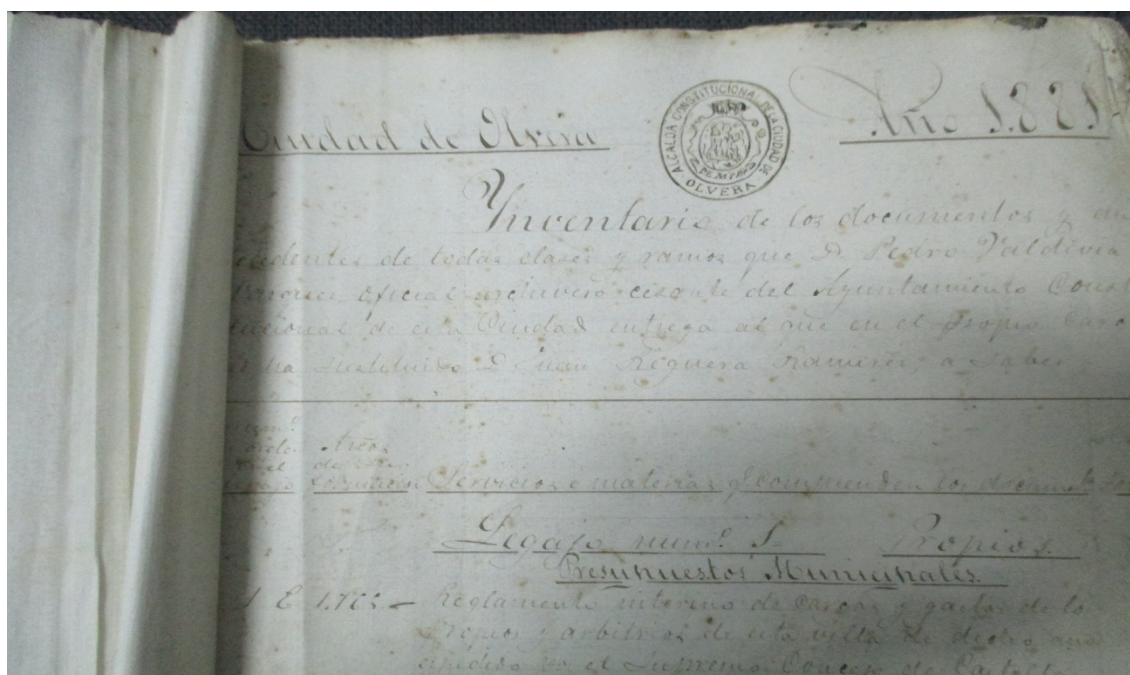 Ciudad de Olvera
ALCALDIA CONSTITUCIONAL DE LA CIUDAD DE
OLVERA
Año 1.881
Ynventario de los documentos y an
tecedentes de todas clases y ramos que D. Pedro Valdivia
oficial archivero cesante del Ayuntamiento Const
itucional de esta Ciudad entrega al que en el propio cargo
le ha sustituido D. Juan Reguera Ramirez, a saber
Años
de su
formacion
Servicios o materias q. comprenden los
Legajo num.º 1. Propios.
Presupuestos Municipales.
1 E 1.765 - Reglamento interino de cargas y gastos de los
Propios y arbitrios de esta villa de dicho año
espedido por el Supremo Consejo de Castilla